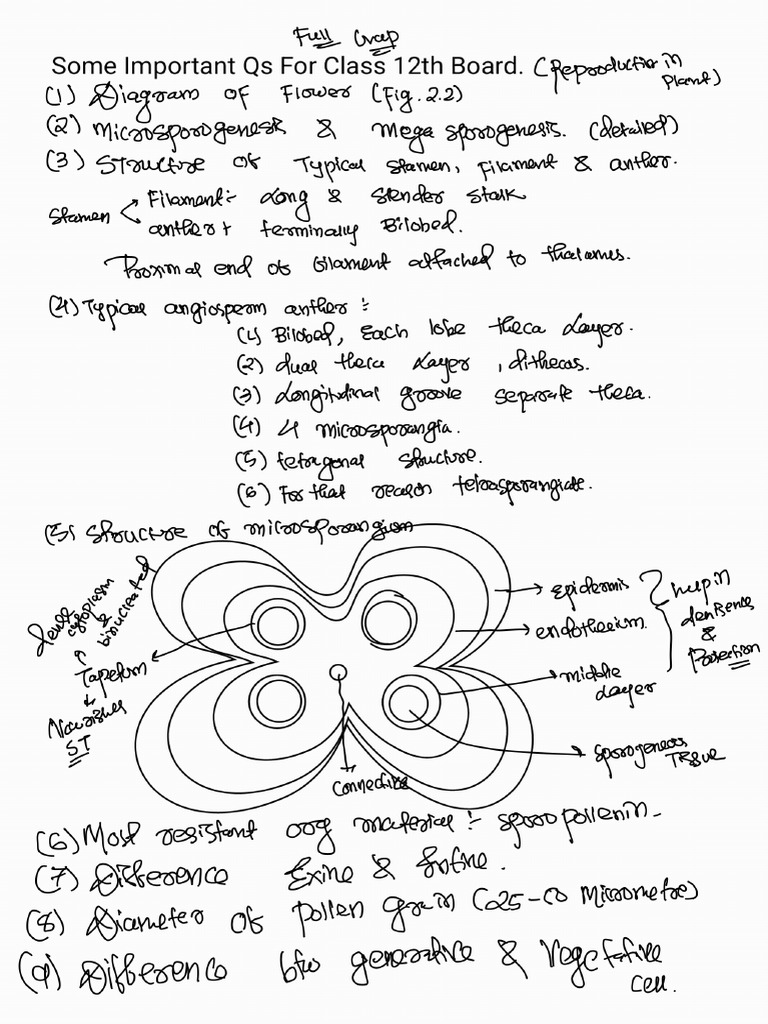 Full Grap
Some Important Qs For Class 12th Board. (Reproduction in Plant)
(1) Diagram of Flower (Fig. 2.2)
(2) Microsporogenesis & Mega sporogenesis. (detailed)
(3) Structure of Typical Stamen, Filament & anther.
Stamen
Filament :- Long & Slender Stalk
anther + terminally Bilobed.
Proximal end of filament attached to thalamus.
(4) Typical angiosperm anther :-
(1) Bilobed, Each lobe theca Layer.
(2) dual theca Layer, dithecas.
(3) Longitudinal groove separate theca.
(4) 4 microsporangia.
(5) tetragonal structure.
(6) For that reason tetrasporangiate.
(5) Structure of microsporangium
dense cytoplasm & binucleated
Tapetum
Nourishes ST
epidermis
endothecium.
middle Layer
help in dehisence & Protection
Sporogeneous Tissue
Connective
(6) Most resistant org material :- sporopollenin -
(7) Difference Exine & Intine.
(8) Diameter of pollen grain (25-50 Micrometre)
(9) Difference btw generative & Vegetative cell.